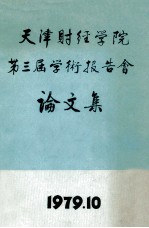 天津财经学院
第三届学術报告會
論文集
1979.10